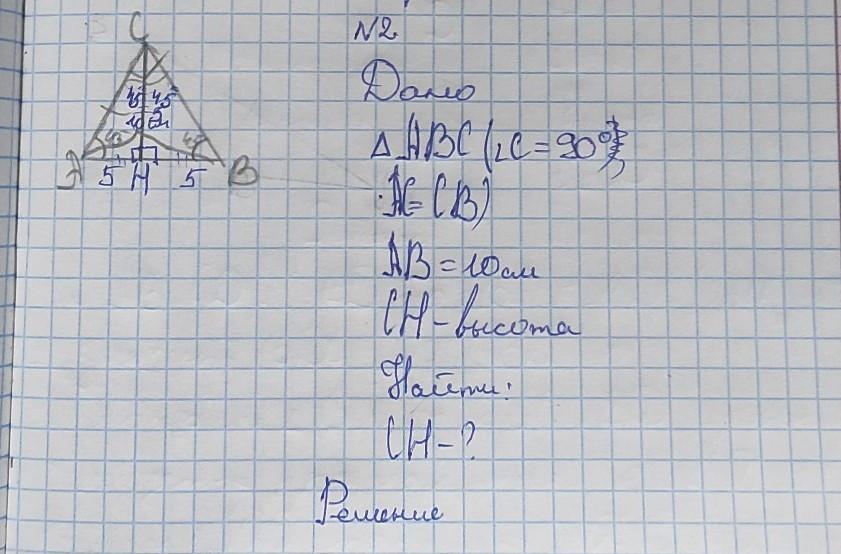 C
45 45
10 см
45 45
A 5 H 5 B
N2
Дано
△ABC (∠C = 90°
AC = CB)
AB = 10 см
CH – высота
Найти:
CH – ?
Решение